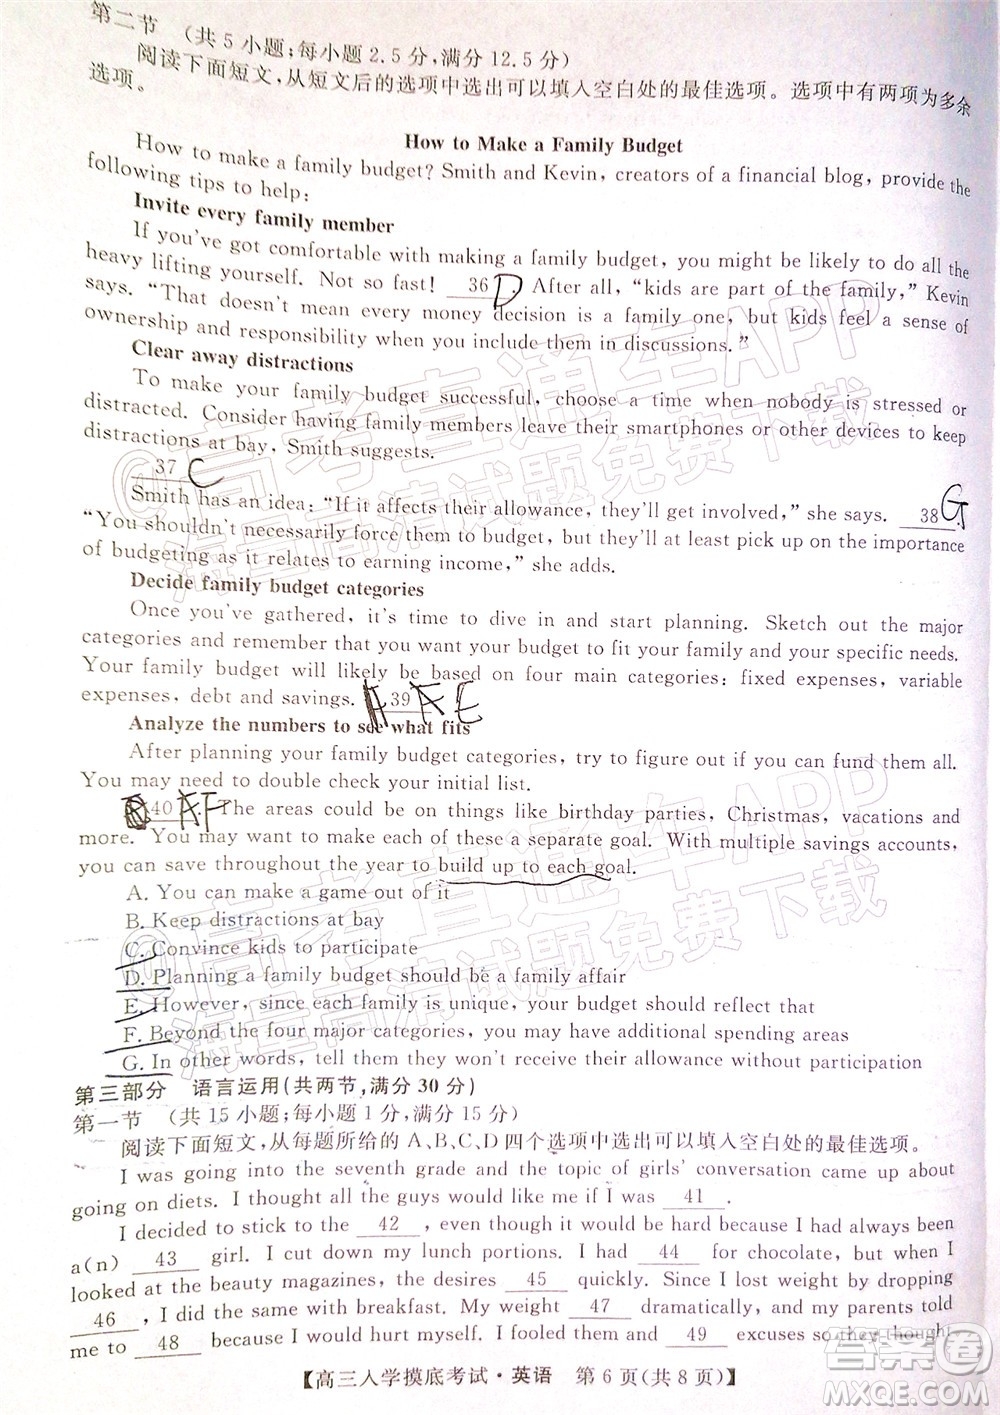 第二节 (共5小题;每小题2.5分,满分12.5分)
阅读下面短文,从短文后的选项中选出可以填入空白处的最佳选项。选项中有两项为多余
选项。
How to Make a Family Budget
How to make a family budget? Smith and Kevin, creators of a financial blog, provide the
following tips to help:
Invite every family member
If you've got comfortable with making a family budget, you might be likely to do all the
heavy lifting yourself. Not so fast! 36 D. After all, "kids are part of the family," Kevin
says. "That doesn't mean every money decision is a family one, but kids feel a sense of
ownership and responsibility when you include them in discussions."
Clear away distractions
To make your family budget successful, choose a time when nobody is stressed or
distracted. Consider having family members leave their smartphones or other devices to keep
distractions at bay, Smith suggests.
37 C
Smith has an idea: "If it affects their allowance, they'll get involved," she says. 38 G.
"You shouldn't necessarily force them to budget, but they'll at least pick up on the importance
of budgeting as it relates to earning income," she adds.
Decide family budget categories
Once you've gathered, it's time to dive in and start planning. Sketch out the major
categories and remember that you want your budget to fit your family and your specific needs.
Your family budget will likely be based on four main categories: fixed expenses, variable
expenses, debt and savings. 39 E
Analyze the numbers to see what fits
After planning your family budget categories, try to figure out if you can fund them all.
You may need to double check your initial list.
40 F The areas could be on things like birthday parties, Christmas, vacations and
more. You may want to make each of these a separate goal. With multiple savings accounts,
you can save throughout the year to build up to each goal.
A. You can make a game out of it
B. Keep distractions at bay
C. Convince kids to participate
D. Planning a family budget should be a family affair
E. However, since each family is unique, your budget should reflect that
F. Beyond the four major categories, you may have additional spending areas
G. In other words, tell them they won't receive their allowance without participation
第三部分 语言运用(共两节,满分30分)
第一节 (共15小题;每小题1分,满分15分)
阅读下面短文,从每题所给的A、B、C、D四个选项中选出可以填入空白处的最佳选项。
I was going into the seventh grade and the topic of girls' conversation came up about
going on diets. I thought all the guys would like me if I was 41 .
I decided to stick to the 42 , even though it would be hard because I had always been
a(n) 43 girl. I cut down my lunch portions. I had 44 for chocolate, but when I
looked at the beauty magazines, the desires 45 quickly. Since I lost weight by dropping
46 , I did the same with breakfast. My weight 47 dramatically, and my parents told
me to 48 because I would hurt myself. I fooled them and 49 excuses so they thought
【高三入学摸底考试·英语 第6页(共8页)】
@高考直通车APP
海量高清试题免费下载
@高考直通车APP
海量高清试题免费下载
答案圈
MXQE.COM